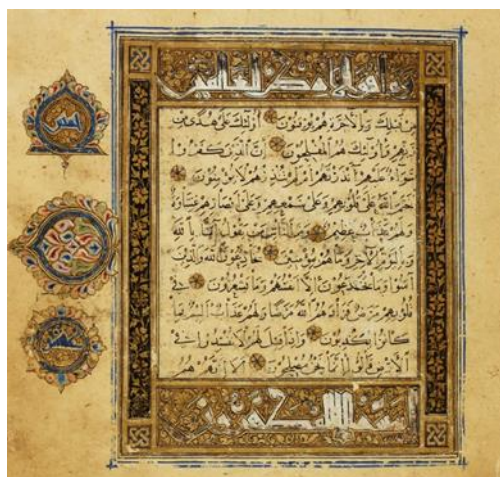 من قبلك وبالآخرة هم يوقنون أولئك على هدى من
ربهم وأولئك هم المفلحون إن الذين كفروا
سواء عليهم أأنذرتهم أم لم تنذرهم لا يؤمنون
ختم الله على قلوبهم وعلى سمعهم وعلى أبصارهم غشاوة
ولهم عذاب عظيم ومن الناس من يقول آمنا بالله
وباليوم الآخر وما هم بمؤمنين يخادعون الله والذين
آمنوا وما يخدعون إلا أنفسهم وما يشعرون في
قلوبهم مرض فزادهم الله مرضا ولهم عذاب أليم بما
كانوا يكذبون وإذا قيل لهم لا تفسدوا في
الأرض قالوا إنما نحن مصلحون ألا إنهم هم